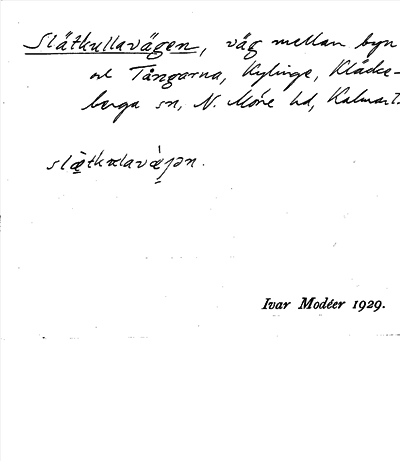 Slätkullavägen, väg mellan byn
ol Tångarna, Kylinge, Kläcke-
berga sn, N. Möre hd, Kalmar l.
slätkɷlavä̀jən.
Ivar Modéer 1929.